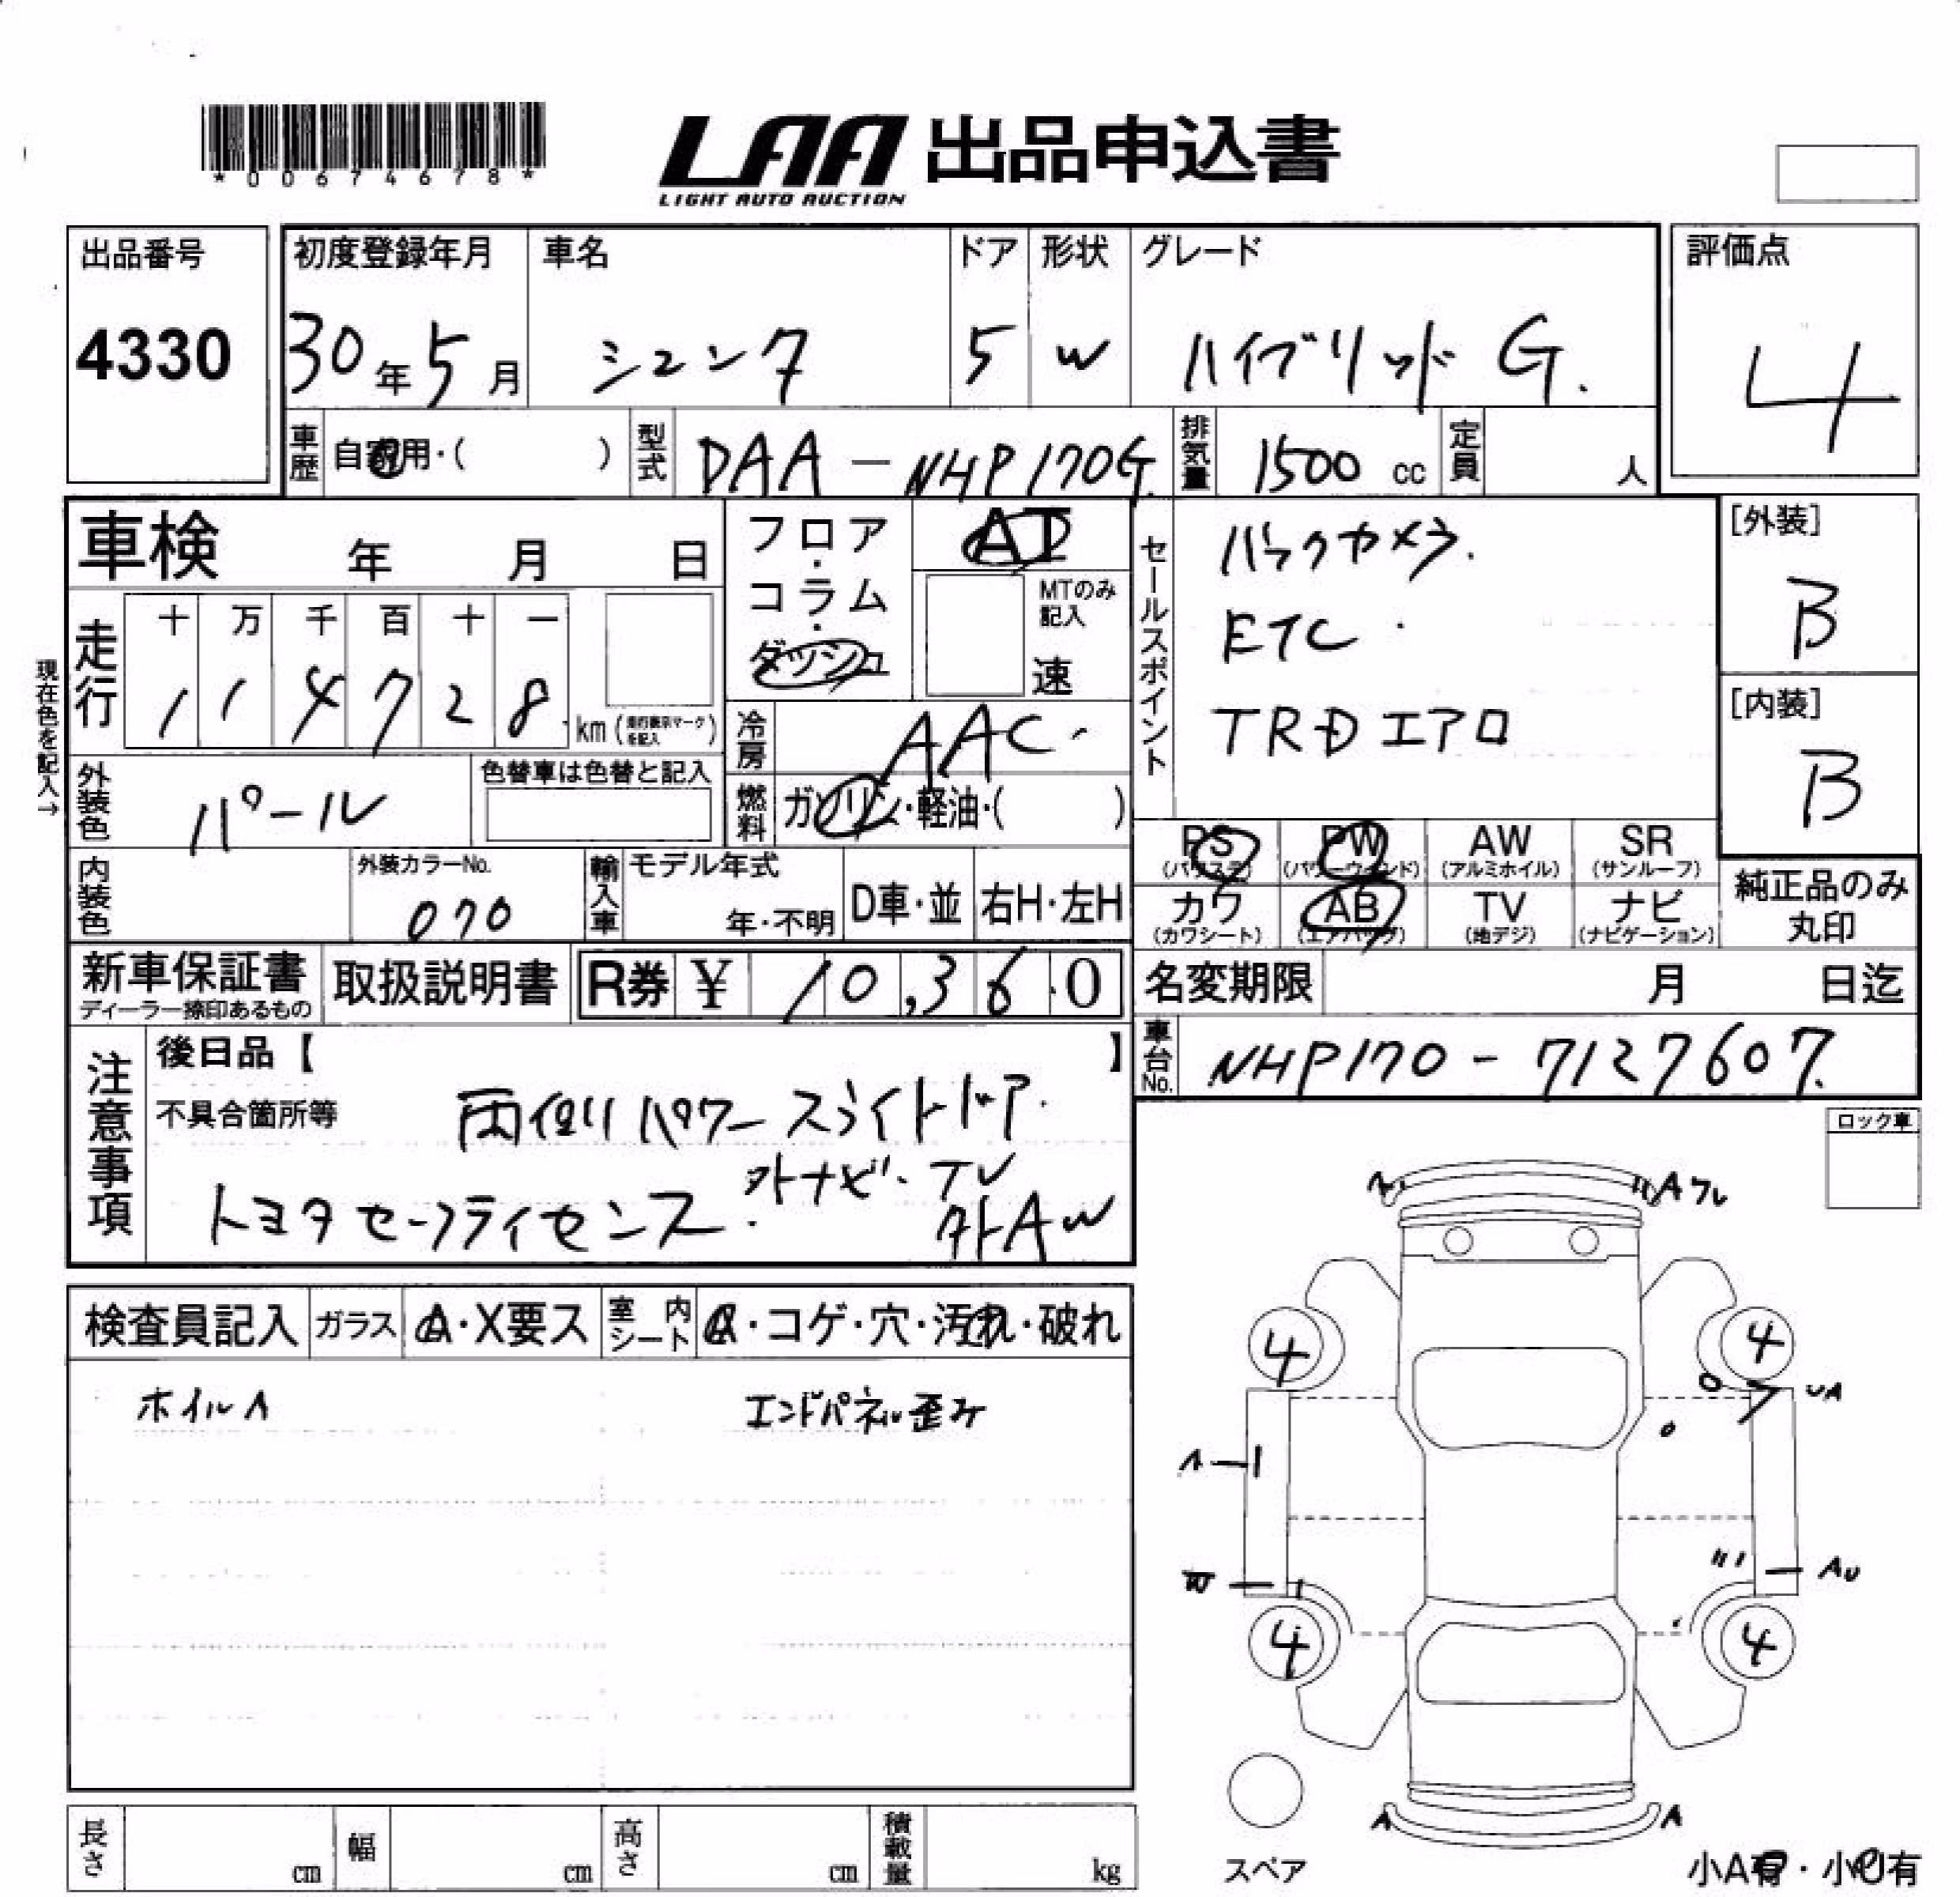 *00674678*
LAA 出品申込書
LIGHT AUTO AUCTION
出品番号
4330
初度登録年月
30年5月
車名
シエンタ
ドア
5
形状
W
グレード
ハイブリッド G.
評価点
4
車歴
自家用・( )
型式
DAA-NHP170G
排気量
1500 cc
定員
人
車検 年 月 日
フロア・コラム・ダッシュ
AT
MTのみ記入
速
セールスポイント
バックカメラ.
ETC.
TRDエアロ
[外装]
B
[内装]
B
現在色を記入→
走行
十 万 千 百 十 一
1 1 4 7 2 8
km (走行表示マークを記入)
冷房
AAC.
外装色
パール
色替車は色替と記入
燃料
ガソリン・軽油・( )
PS (パワステ)
PW (パワーウインド)
AW (アルミホイル)
SR (サンルーフ)
内装色
外装カラーNo.
070
輸入車
モデル年式
年・不明
D車・並
右H・左H
カワ (カワシート)
AB (エアバッグ)
TV (地デジ)
ナビ (ナビゲーション)
純正品のみ丸印
新車保証書
ディーラー捺印あるもの
取扱説明書
R券 ¥ 10,360
名変期限 月 日迄
車台No.
NHP170-7127607.
注意事項
後日品【 】
不具合箇所等
両側パワースライドドア.
外ナビ.TV
トヨタセーフティセンス.
外AW
ロック車
検査員記入
ガラス
A・X要ス
室内シート
・コゲ・穴・汚れ・破れ
ホイルA
エンドパネル歪み
A
Aワレ
4
4
UA
A
W
AU
4
4
A
A
スペア
小A有・小U有
長さ cm
幅 cm
高さ cm
積載量 kg